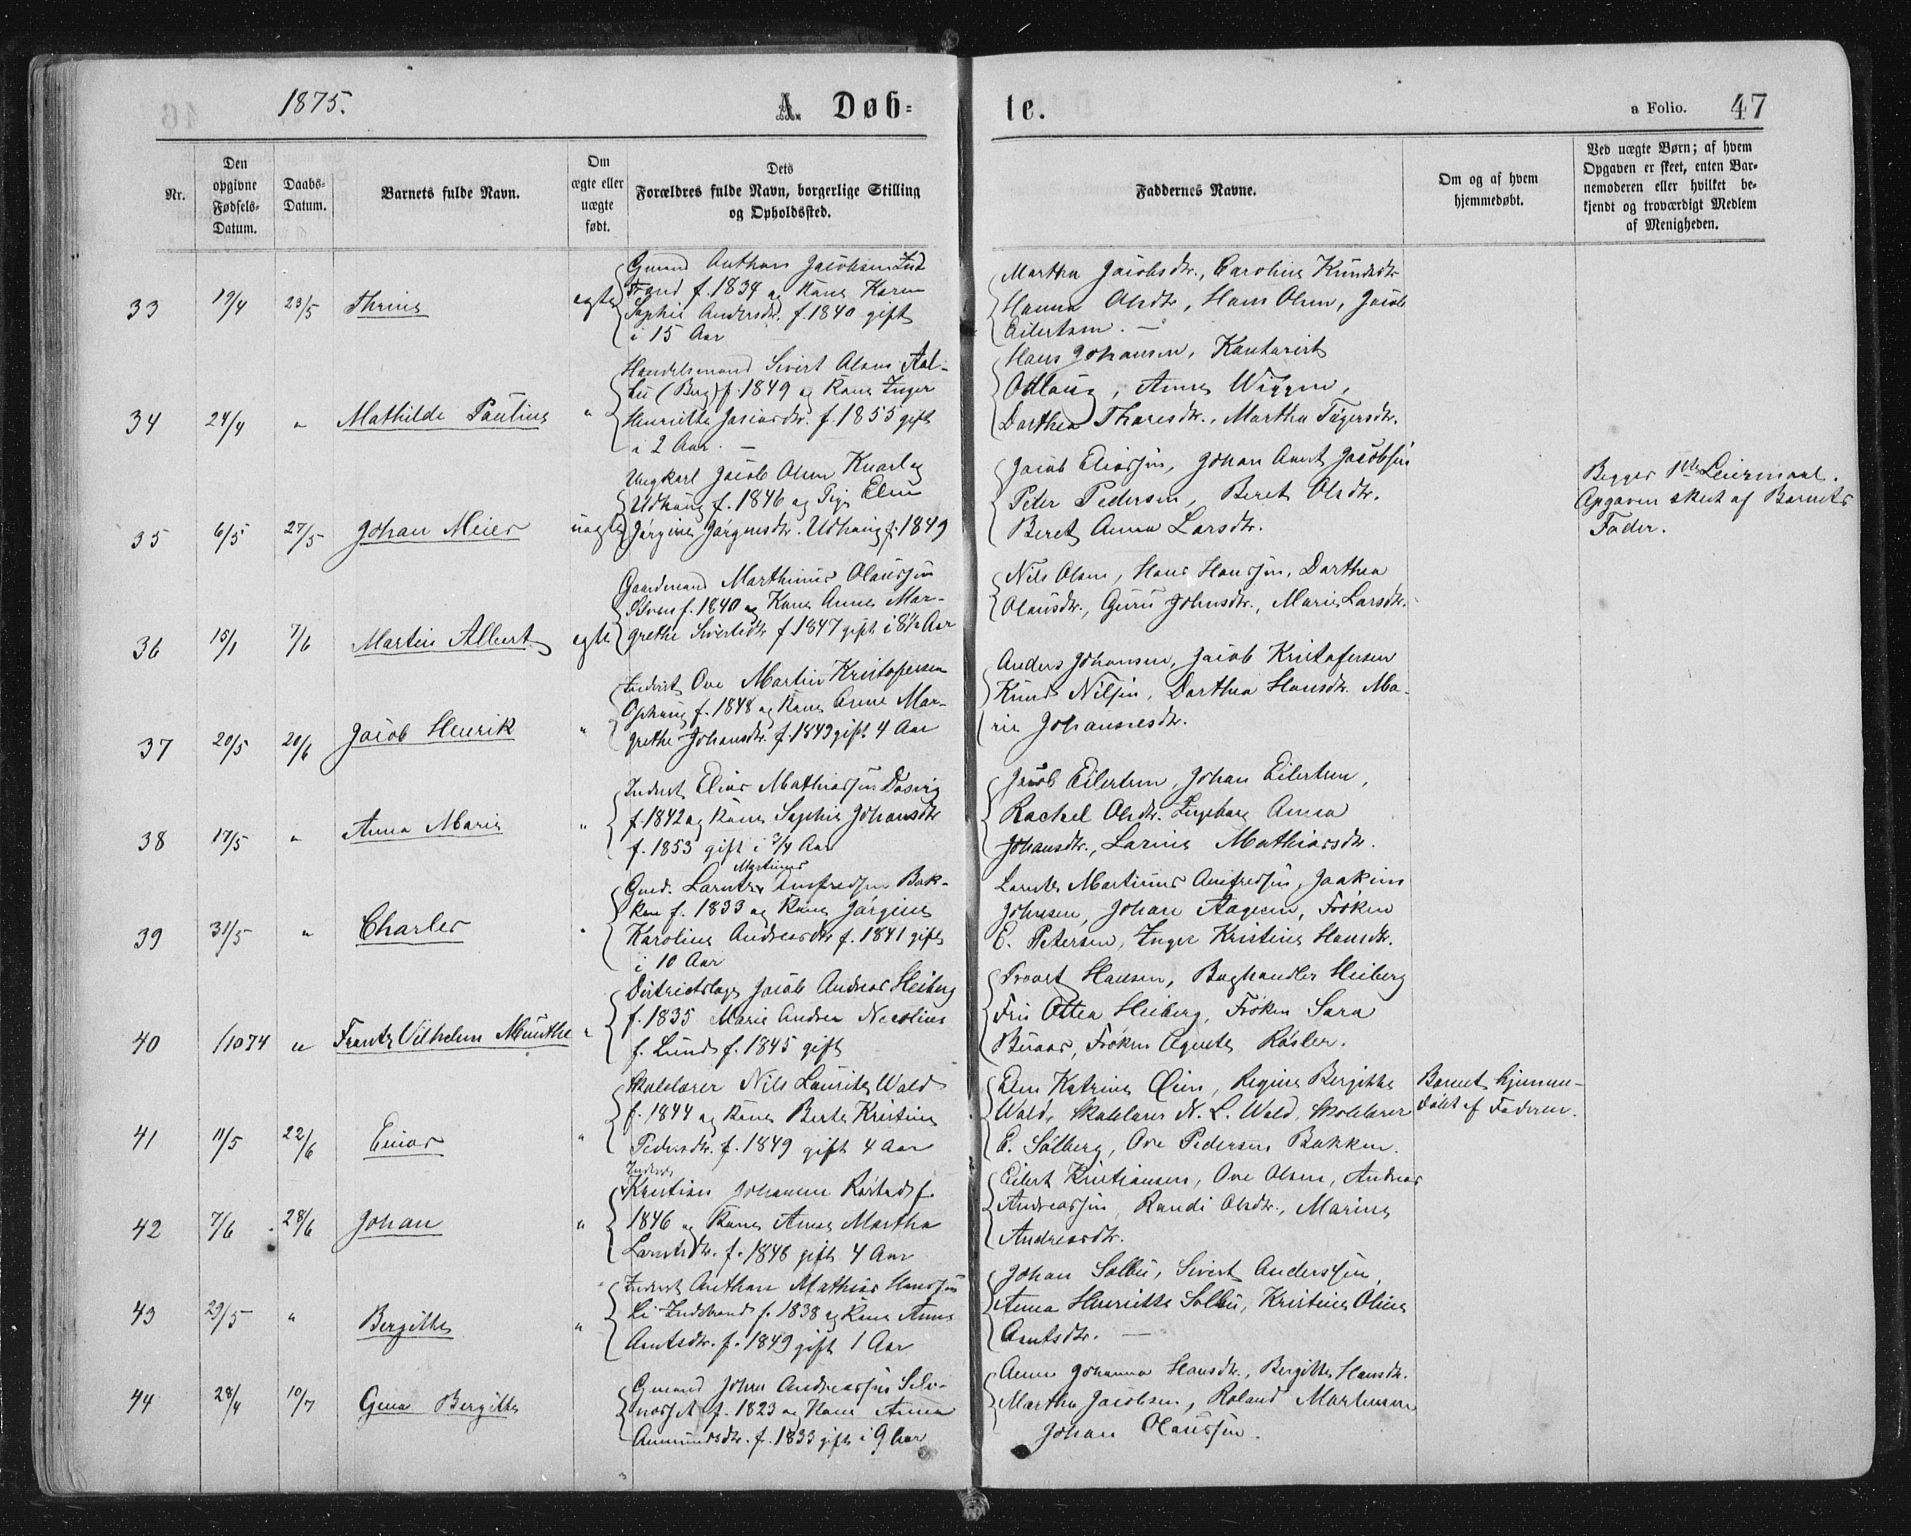 1875.
A. Døb=
te.
a Folio. 47
Nr.
Den opgivne Fødsels-Datum.
Daabs-Datum.
Barnets fulde Navn.
Om ægte eller uægte født.
Dets Forældres fulde Navn, borgerlige Stilling og Opholdssted.
Faddernes Navne.
Om og af hvem hjemmedøbt.
Ved uægte Børn; af hvem Opgaven er skeet, enten Barnemoderen eller hvilket bekjendt og troværdigt Medlem af Menigheden.
33 19/4 23/5 Thrine egte
Gmand Anthon Jacobsen
f. 1834 og Kone Karen
Sophie Andersdr. f. 1840 gift
i 15 Aar
Martha Jacobsdr., Caroline Knudsdr
Hanna Olsdr, Hans Olsen, Jacob
Eilertsen. —
34 24/4 " Mathilde Pauline "
Handelsmand Sivert Olsen Aal-
bu (Berg) f. 1849 og Kone Inger
Henriette Josiasdr. f. 1855 gift
i 2 Aar. —
Hans Johansen, Kantorist
Othaug, Anne Wiggen,
Dorthea Thoresdr., Martha Tøgersdr.
35 6/5 27/5 Johan Meier uægte
Ungkarl Jacob Olsen
Udhaug f. 1846 og Pige Elen
Jørgine Jørgensdr. Udhaug f. 1849
Jacob Eliassen, Johan Arnt Jacobsen
Peter Pedersen, Beret Olsdr.
Beret Anna Larsdr.
Begges 1ste Leiermaal.
Opgaven skeet af Barnets
Fader.
36 15/1 7/6 Martin Albert egte
Gaardmand Marthinus Olaussen
f. 1840 og Kone Anne Mar-
grethe Sivertsdr f. 1847 gift i 8½ Aar
Nils Olsen, Hans Hanssen, Dorthea
Olausdr., Guru Johnsdr., Marie Larsdr.
37 20/5 20/6 Jacob Henrik "
Inderst Ove Martin Kristofersen
Ophaug f. 1848 og Kone Anne Mar-
grethe Johansdr. f. 1849 gift 4 Aar
Anders Johansen, Jacob Kristofersen
Knud Nilsen, Dorthea Hansdr. Ma-
rie Johannesdr.
38 17/5 " Anna Marie "
Inderst Elias Mathiassen Døsvig
f. 1842 og Kone Sophie Johansdr
f. 1853 gift i 3/4 Aar
Jacob Eilertsen, Johan Eilertsen,
Rachel Olsdr. Ingeborg Anna
Johansdr., Larine Mathiasdr.
39 31/5 " Charles "
Martinus
Gmd. Larents Amfredsen Bak-
ken f. 1833 og Kone Jørgine
Karoline Andreasdr f. 1841 gift
i 10 Aar
Larents Martinus Amfredsen, Joakim
Johnsen, Johan Aagesen, Frøken
E. Petersen, Inger Kristine Hansdr.
40 1/10 74 " Frantz Vilhelm Munthe "
Districtslæge Jacob Andreas Heiberg
f. 1835 Marie Andrea Nicoline
f. Lund f. 1845 gift
Provst Hansen, Boghandler Heiberg
Fru Ottea Heiberg, Frøken Sara
Buaas, Frøken Agnete Røsler.
41 11/5 22/6 Einar "
Skolelærer Nils Laurits Wald
f. 1844 og Kone Berte Kristine
Pedersdr. f. 1849 gift 4 Aar
Elen Katrine Øien, Regine Bergitte
Wald, Skolelærer N. L. Wald, Skolelærer
E. Solberg, Ove Pedersen Bakken.
Barnet hjemme-
døbt af Faderen.
42 7/6 28/6 Johan "
Inderst
Kristian Johannes Røstad f.
1846 og Kone Anne Martha
Larntsdr. f. 1848 gift 4 Aar
Eilert Kristiansen, Ove Olsen, Andreas
Andreassen, Randi Olsdr., Marine
Andreasdr.
43 29/5 " Bergitte "
Inderst Anthon Mathias Hanssen
Li Indstrand f. 1838 og Kone Anne
Arntsdr. f. 1849 gift 1 Aar
Johan Solbu, Sivert Anderssen,
Anna Henriette Solbu, Kristine Oline
Arntsdr. —
44 28/4 10/7 Gina Bergitte
Gmand Johan Andreassen Selv-
f. 1823 og Kone Anna
Amundsdr. f. 1833 gift i 9 Aar
Anne Johanna Hansdr., Bergitte Hansdr.
Martha Jacobsen, Roland Martensen
Johan Olaussen.